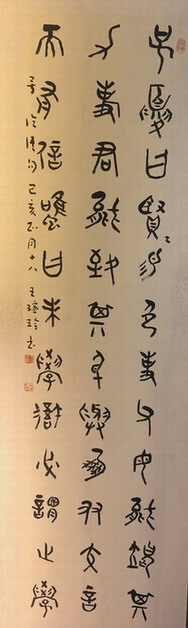 子夏曰賢〻易色事父母能竭其
力事君能致其身與朋友交言
而有信雖曰未學吾必謂之學
语句 己亥正月十八 王玲书